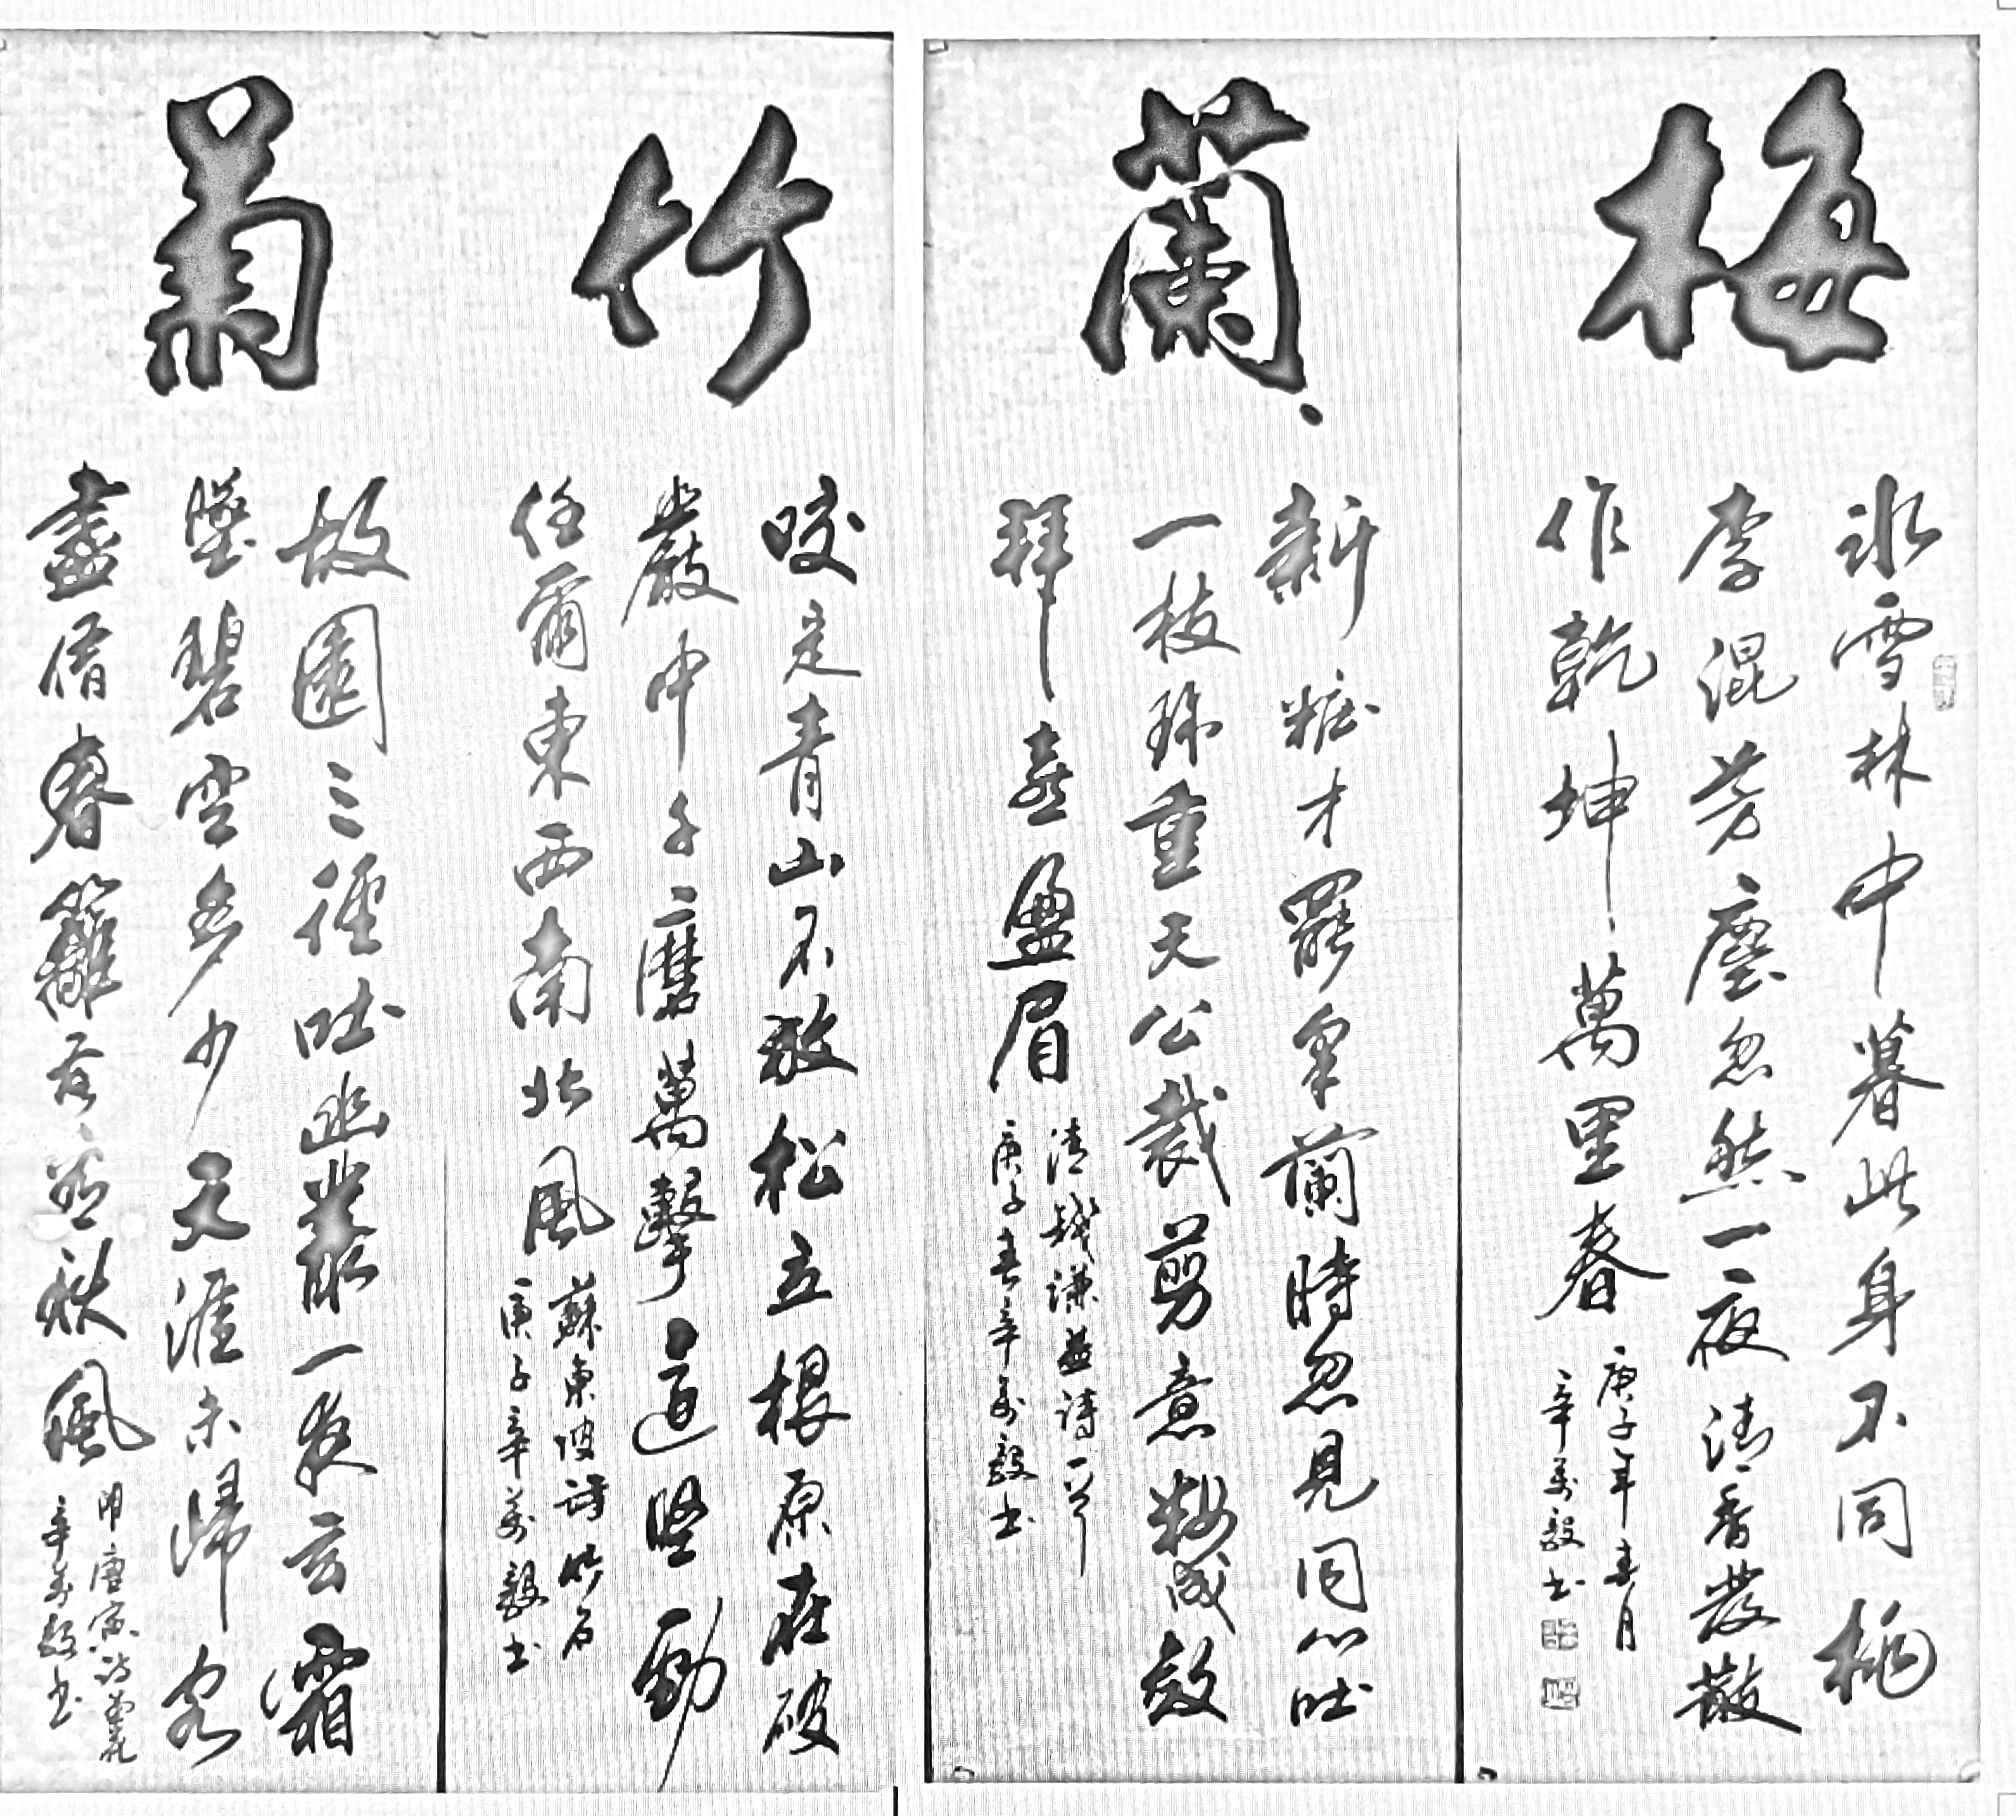 梅
冰雪林中著此身不同桃
李混芳塵忽然一夜清香發散
作乾坤萬里春
庚子年春月
辛萬毅书
蘭
新粧才罷采蘭時忽見同心吐
一枝珎重天公裁剪意粧成敛
拜喜盈眉
清钱谦益诗一首
庚子春辛萬毅书
竹
咬定青山不放松立根原在破
巖中千磨萬擊還堅勁
任爾東西南北風
蘇東坡詩竹石
庚子辛萬毅书
菊
故園三徑吐幽叢一夜玄霜
墜碧空多少天涯未歸客
盡借春籬秋風
明唐寅诗菊花
辛萬毅书